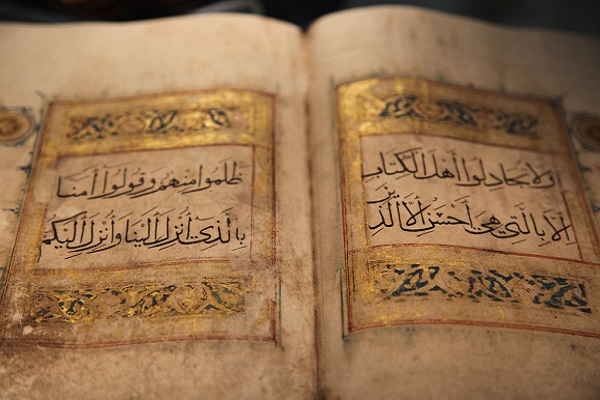 ولا تجادلوا أهل الكتاب
إلا بالتي هي أحسن إلا الذين
ظلموا منهم وقولوا آمنا
بالذي أنزل إلينا وأنزل إليكم